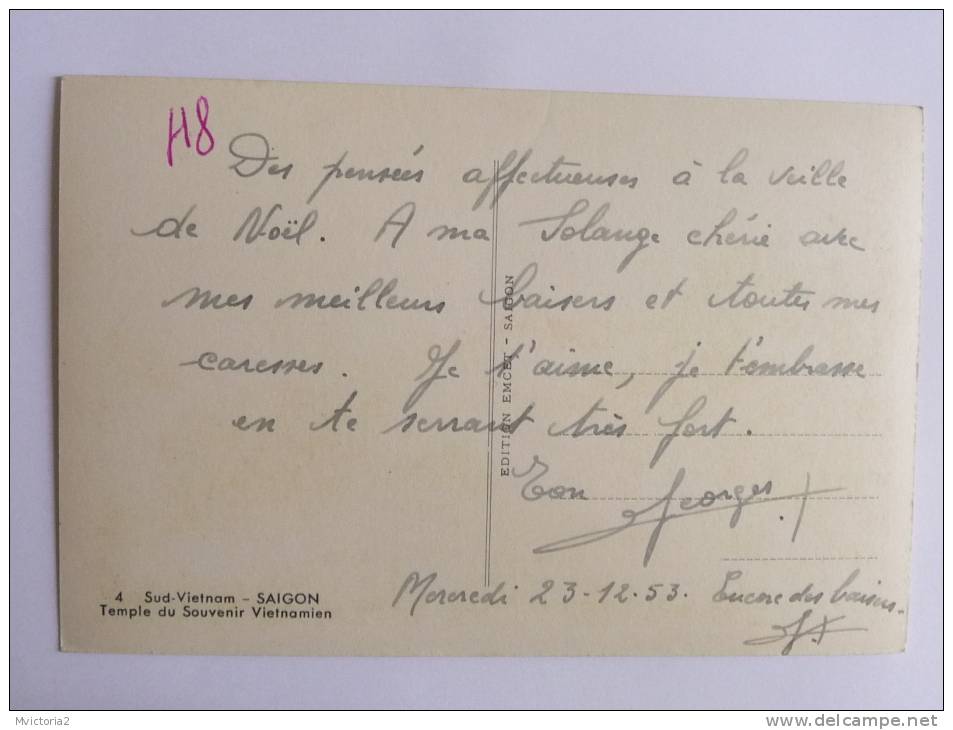 H8
Des pensées affectueuses à la veille
de Noël. A ma Solange chérie avec
mes meilleurs baisers et toutes mes
caresses. Je t'aime, je t'embrasse
en te serrant très fort.
Ton Georges
Mercredi 23-12-53. Encore des baisers.
EDITION EMCET - SAIGON
4 Sud-Vietnam - SAIGON
Temple du Souvenir Vietnamien
Mvictoria2
www.delcampe.net